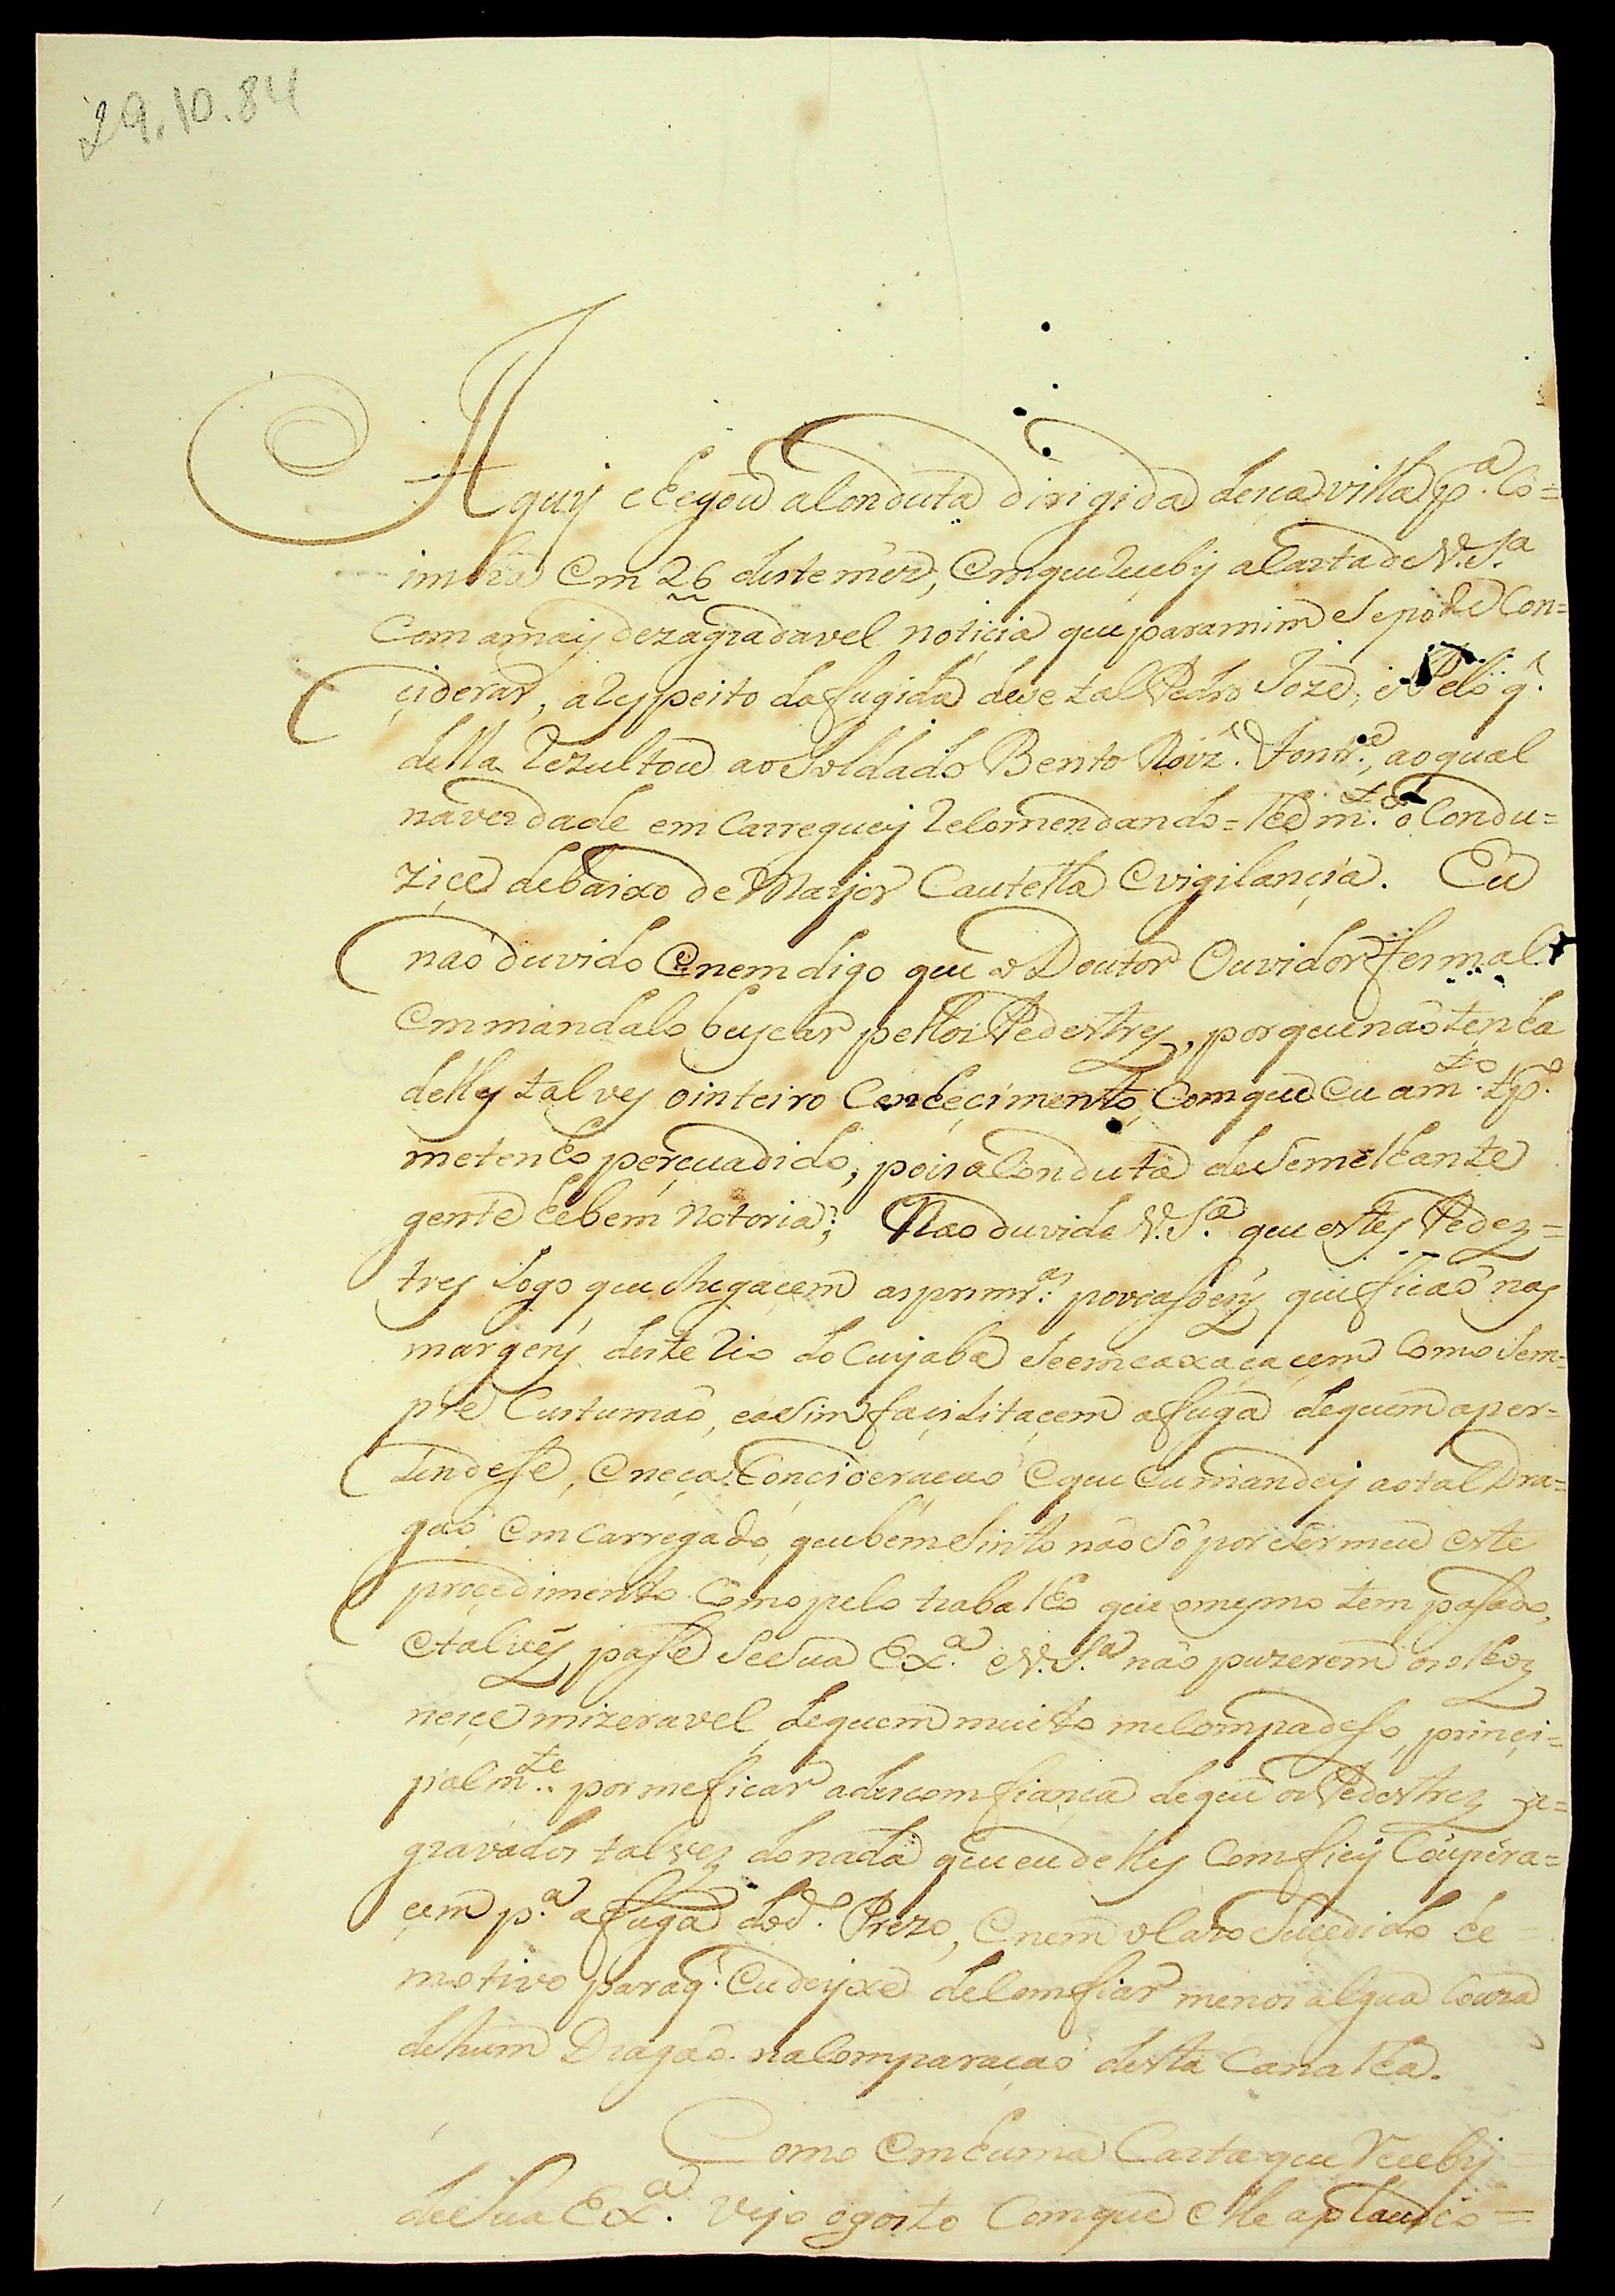 29.10.84
Aquy chegou a Conduta dirigida deça villa p.ª Co=
imbra em 26 deste mês, em que Reçeby a Carta de V. S.ª
Com a mais dezagradavel notiçia que para mim se pode Con=
çiderar, a Respeito da fugida dese tal Pedro Joze, e Pelo q.
della Rezultou ao Soldado Bento Roiz. Fontr.ª, ao qual
na verdade em Carreguey Recomendando=lhe m.to o Condu=
ziçe debaixo de Mayor Cautella e vigilançia. Eu
naõ duvido e nem digo que o Doutor Ouvidor fes mal
em mandalo buscar pellos Pedestres, porque naõ tenha
delles talves o inteiro Conheçimento, Com que eu a m.to tp.º
me tenho perçuadido, pois a Conduta de Semelhante
gente he bem Notoria; Nao duvida V. S.ª que estes Pedez=
tres logo que chegaçem as primr.as povoasoẽs que ficaõ nas
margens deste Rio do Cuyaba se emcaxaçaçem Como Sem=
pre Custumaõ, e asim façilitaçem a fuga de quem a per=
tendese, e neça Conçideraçaõ e que eu mandey ao tal Dra=
gaõ em Carregado, que bem Sinto não Só por Ser meu este
proçedimento Como pelo trabalho que o mesmo tem pasado,
e talves pase Se Sua Ex.ª e V. S.ª não puzerem os olhoz
neiçe mizeravel de quem muito me Compadeso, prinçi=
palm.te por me ficar a descomfiança de que os Pedestrez a=
gravados talvez do nada que eu delles Comfiey Coupera=
çem p.ª a fuga do d.º Prezo, e nem o Cazo Suçedido he
motivo para q. eu deyxe de Comfiar menos algua Couza
de hum Dragaõ na Comparaçaõ desta Canalha.
Como em huma Carta que Reçeby
de Sua Ex.ª vejo o gosto Com que elle aplaudio=